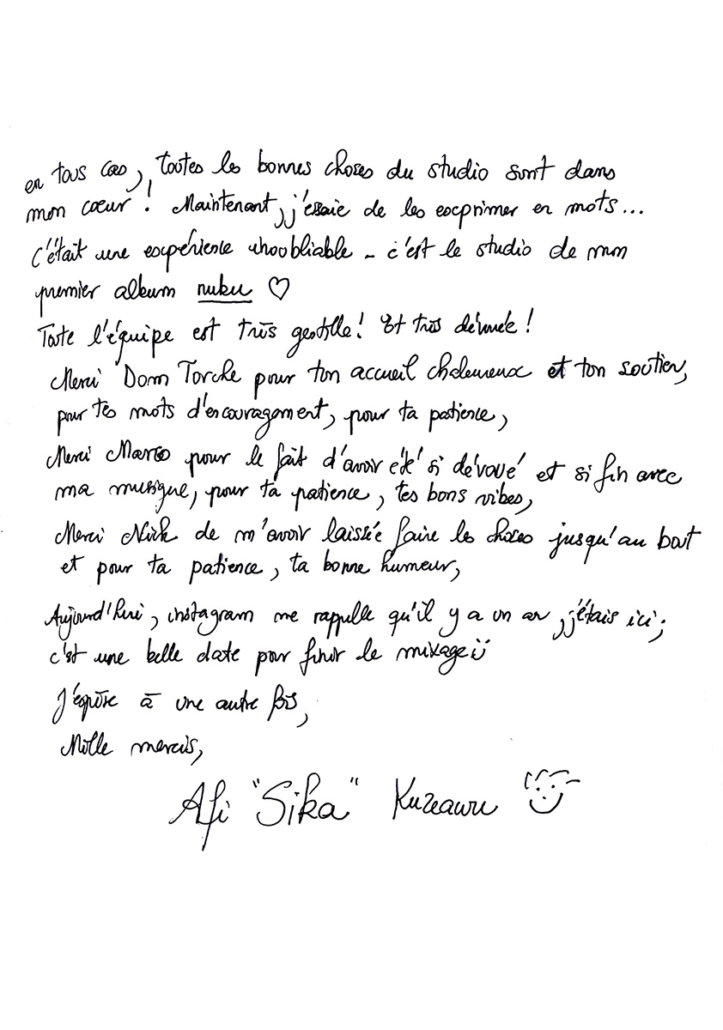 en tous cas, toutes les bonnes choses du studio sont dans
mon cœur ! Maintenant, j'essaie de les exprimer en mots...
C'était une expérience inoubliable - c'est le studio de mon
premier album nuku ♡
Toute l'équipe est très gentille! Et très dévouée!
Merci Dom Torche pour ton accueil chaleureux et ton soutien,
pour tes mots d'encouragement, pour ta patience,
Merci Marco pour le fait d'avoir été si dévoué et si fin avec
ma musique, pour ta patience, tes bons vibes,
Merci Nick de m'avoir laissée faire les choses jusqu'au bout
et pour ta patience, ta bonne humeur,
Aujourd'hui, instagram me rappelle qu'il y a un an, j'étais ici;
c'est une belle date pour finir le mixage ü
J'espère à une autre fois,
Mille mercis,
Afi "Sika" Kuzeawu